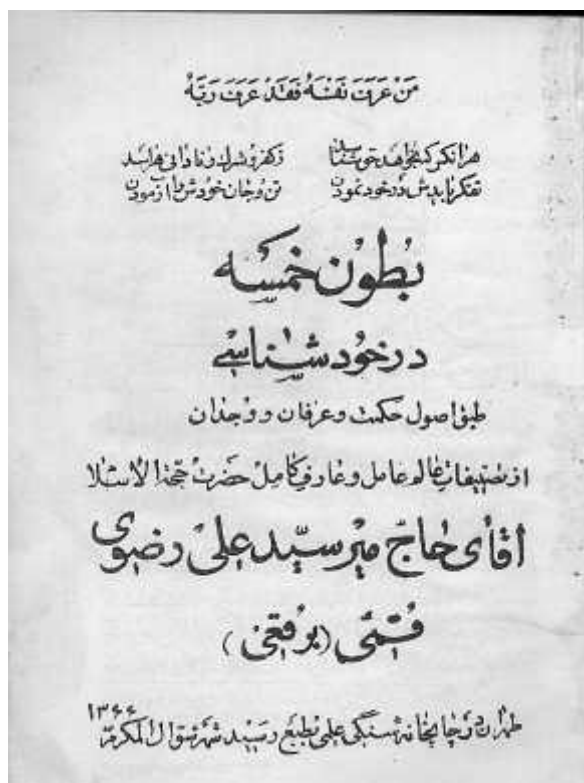 مَنْ عَرَفَ نَفْسَهُ فَقَدْ عَرَفَ رَبَّهُ
هرانکو که خواهد حق شناسد ز کفر و شرک و نادانی هراسد
تفکر بایدش در خود نمودن تن و جان خودش را آزمودن
بُطُون خمسَه
در خُود شناسے
طبق اصول حکمت و عرفان و وجدان
از تصنیفات عالم عامل و عارف کامل حضرت حجة الاسلا
آقای حاجّ میر سیّد علی رضوی
قُمّی (برقعی)
طهران در چاپخانه سنگی علمی بطبع رسید شهر شوال المکرم ۱۳۶۶